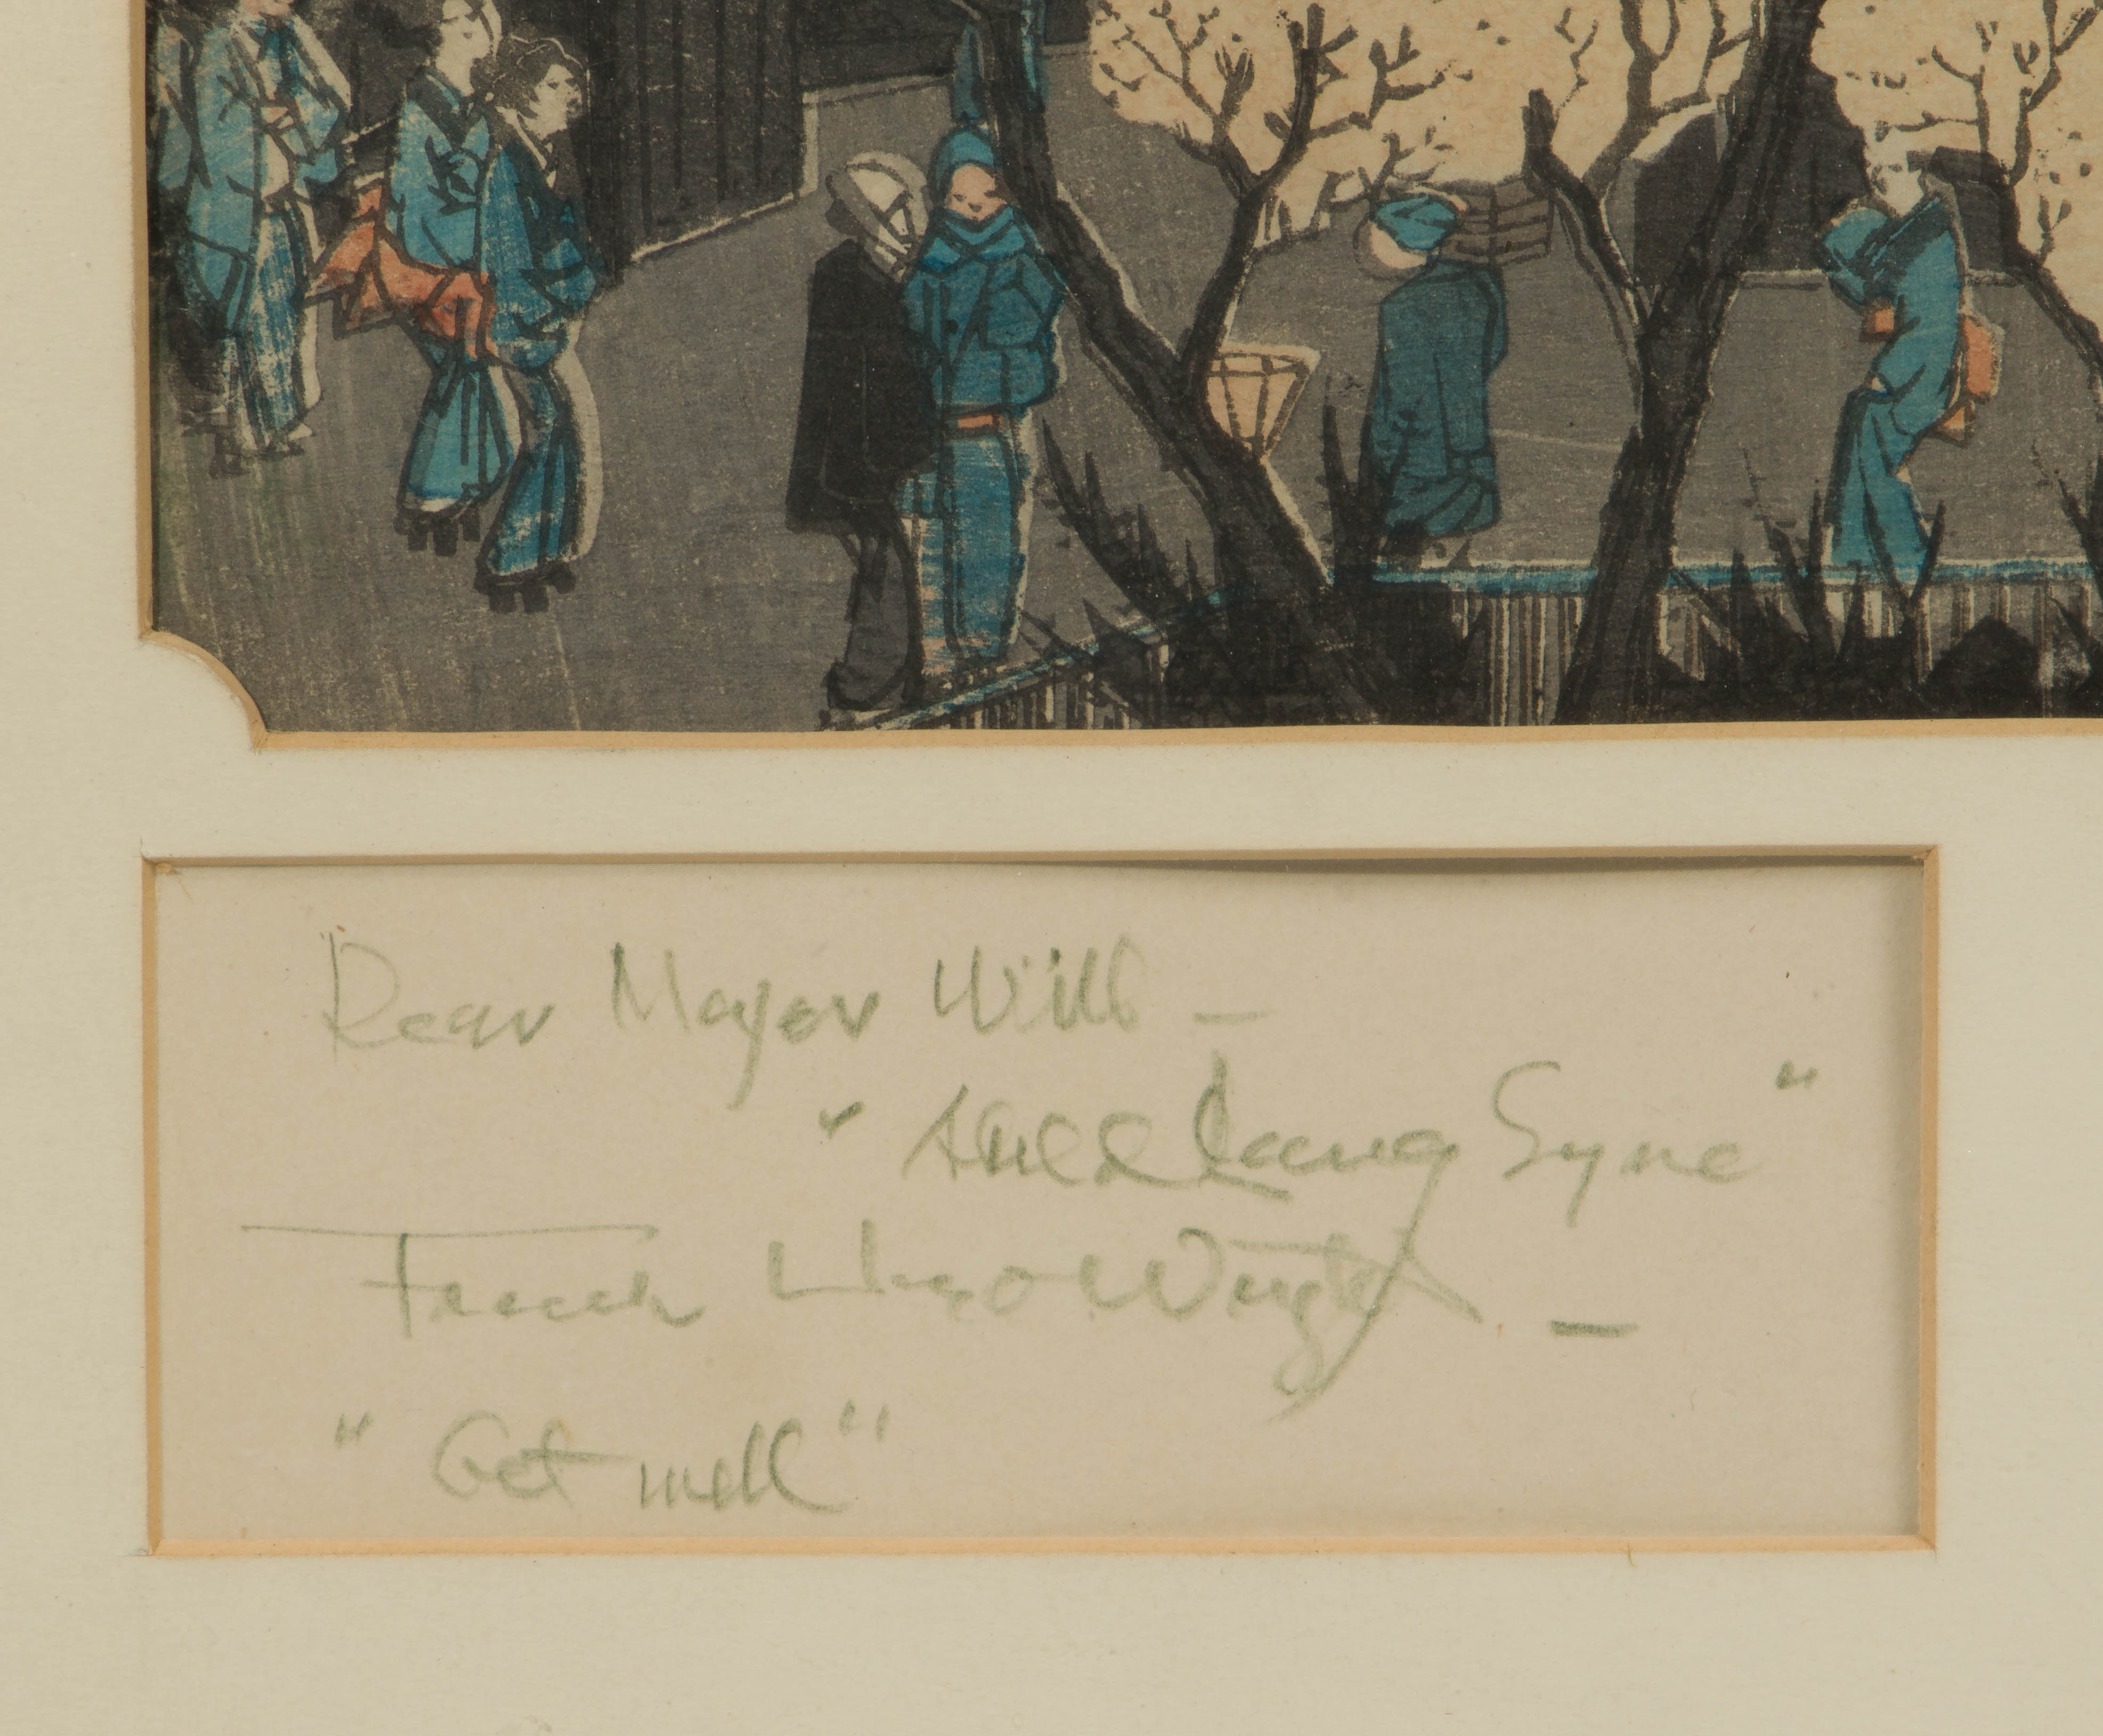 Dear Mayor Will —
"Auld Lang Syne"
Frank Lloyd Wright —
"Get well"